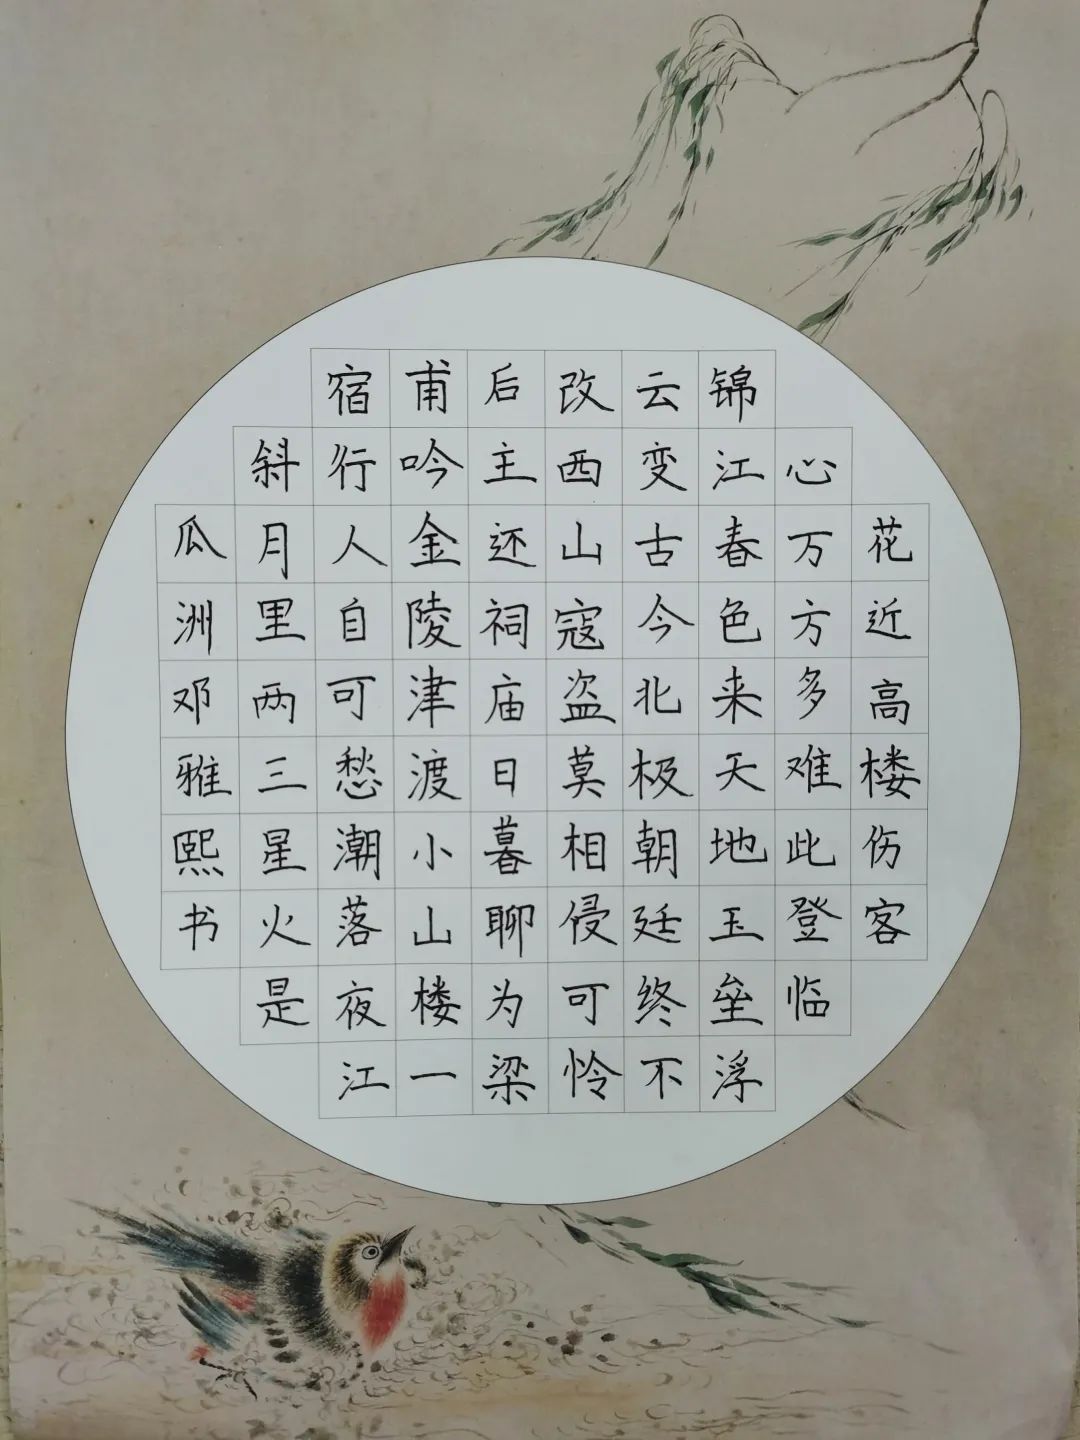 花近高楼伤客
心万方多难此登临
锦江春色来天地玉垒浮
云变古今北极朝廷终不
改西山寇盗莫相侵可怜
后主还祠庙日暮聊为梁
甫吟金陵津渡小山楼一
宿行人自可愁潮落夜江
斜月里两三星火是
瓜洲邓雅熙书